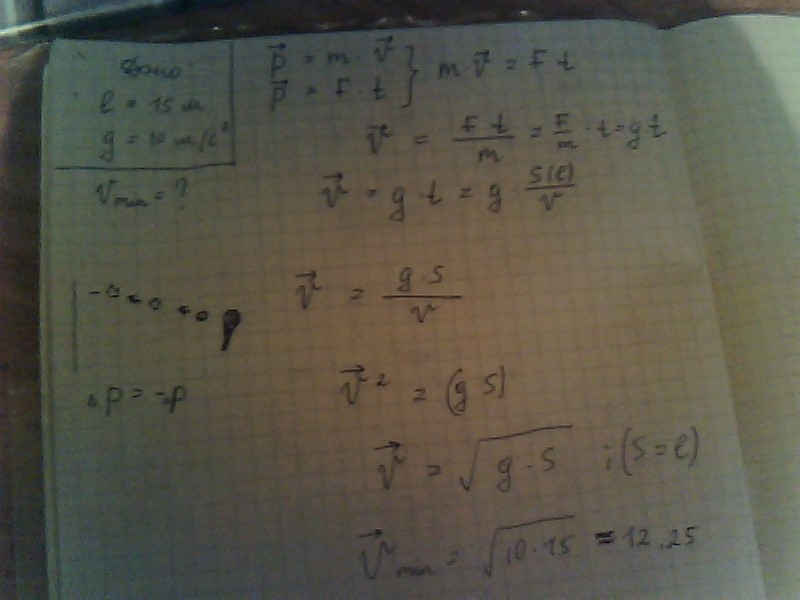 Дано:
l = 15 м
g = 10 м/с²
Vmin = ?
p⃗ = m · v⃗
p⃗ = F · t } m v⃗ = F t
v⃗ = F t / m = F / m · t = g t
v⃗ = g · t = g · S(l) / v
v⃗ = g · S / v
Δp = -p
v⃗² = (g S)
v⃗ = √g · S ; (S = l)
v⃗min = √10 · 15 ≈ 12,25